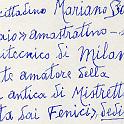 cittadino Mariano B
aio» amastratino –
itecnico di Milan
te amatore della
antica di Mistrett
ta dai Fenici», dedi